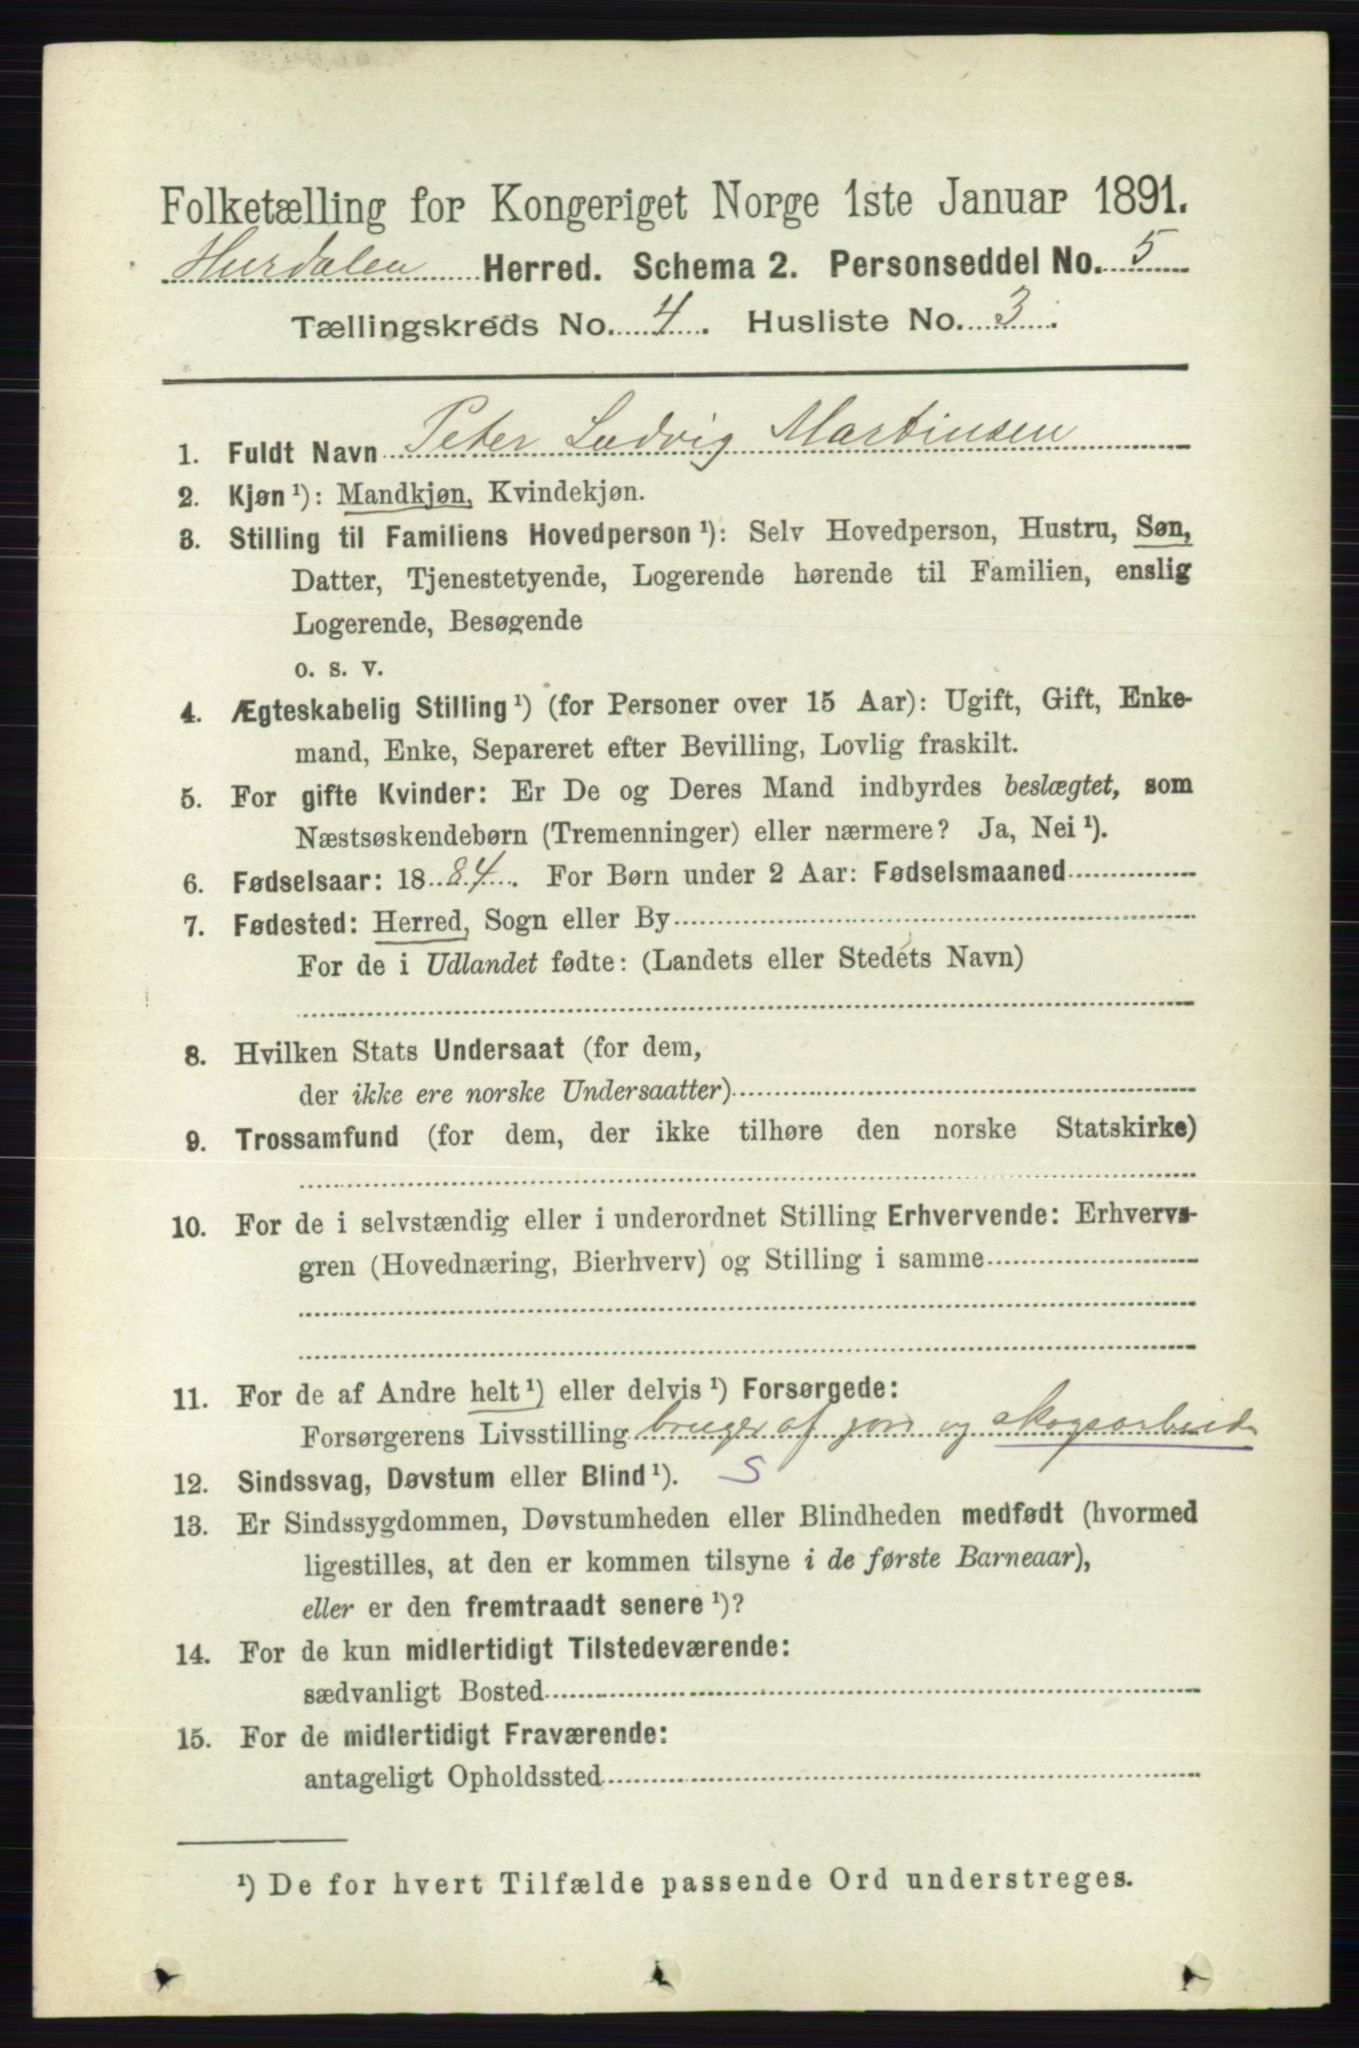 Folketælling for Kongeriget Norge 1ste Januar 1891.
Hurdalen Herred. Schema 2. Personseddel No. 5
Tællingskreds No. 4. Husliste No. 3.
1. Fuldt Navn Peter Ludvig Martinsen
2. Kjøn ¹): Mandkjøn, Kvindekjøn.
3. Stilling til Familiens Hovedperson ¹): Selv Hovedperson, Hustru, Søn,
Datter, Tjenestetyende, Logerende hørende til Familien, enslig
Logerende, Besøgende
o. s. v.
4. Ægteskabelig Stilling ¹) (for Personer over 15 Aar): Ugift, Gift, Enke-
mand, Enke, Separeret efter Bevilling, Lovlig fraskilt.
5. For gifte Kvinder: Er De og Deres Mand indbyrdes beslægtet, som
Næstsøskendebørn (Tremenninger) eller nærmere? Ja, Nei ¹).
6. Fødselsaar: 1884. For Børn under 2 Aar: Fødselsmaaned
7. Fødested: Herred, Sogn eller By
For de i Udlandet fødte: (Landets eller Stedets Navn)
8. Hvilken Stats Undersaat (for dem,
der ikke ere norske Undersaatter)
9. Trossamfund (for dem, der ikke tilhøre den norske Statskirke)
10. For de i selvstændig eller i underordnet Stilling Erhvervende: Erhvervs-
gren (Hovednæring, Bierhverv) og Stilling i samme
11. For de af Andre helt ¹) eller delvis ¹) Forsørgede:
Forsørgerens Livsstilling bruger af jord og skogsarbeid
12. Sindssvag, Døvstum eller Blind ¹). S
13. Er Sindssygdommen, Døvstumheden eller Blindheden medfødt (hvormed
ligestilles, at den er kommen tilsyne i de første Barneaar),
eller er den fremtraadt senere ¹)?
14. For de kun midlertidigt Tilstedeværende:
sædvanligt Bosted
15. For de midlertidigt Fraværende:
antageligt Opholdssted
¹) De for hvert Tilfælde passende Ord understreges.